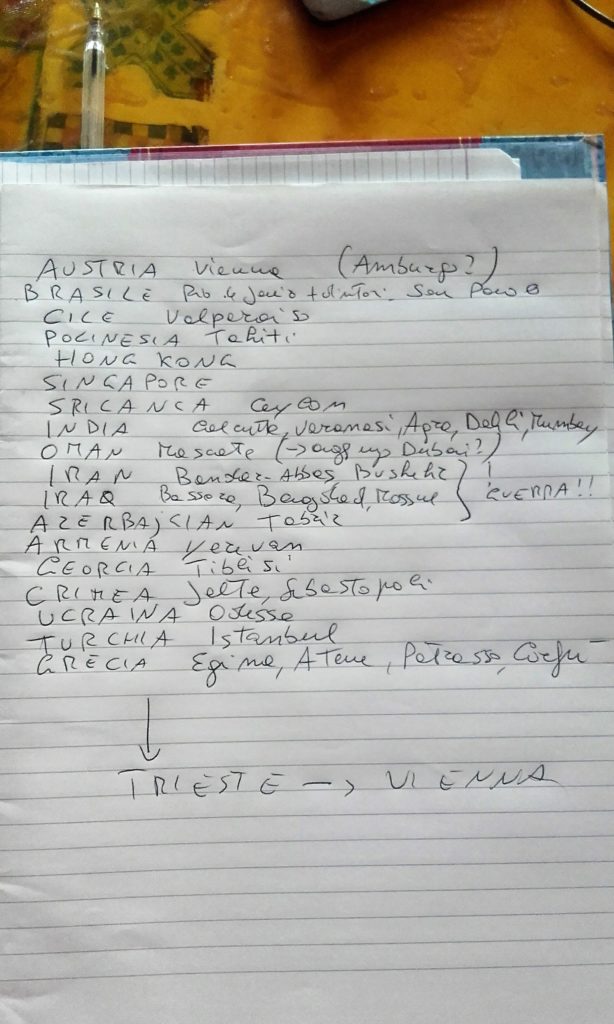 AUSTRIA Vienna (Amburgo?)
BRASILE Rio de Janeiro + dintorni San Paolo
CILE Valparaiso
POLINESIA Tahiti
HONG KONG
SINGAPORE
SRI LANCA Ceylon
INDIA Calcutta, Varanasi, Agra, Delhi, Mumbay
OMAN Mascate (→ Dubai?)
IRAN Bender-Abbas, Bushehr
IRAQ Bassora, Baghdad, Mossul
GUERRA!!
AZERBAJCIAN Tabriz
ARMENIA Yerevan
GEORGIA Tiblisi
CRIMEA Jalta, Sebastopoli
UCRAINA Odessa
TURCHIA Istanbul
GRECIA Egina, Atene, Patrasso, Corfù
TRIESTE → VIENNA